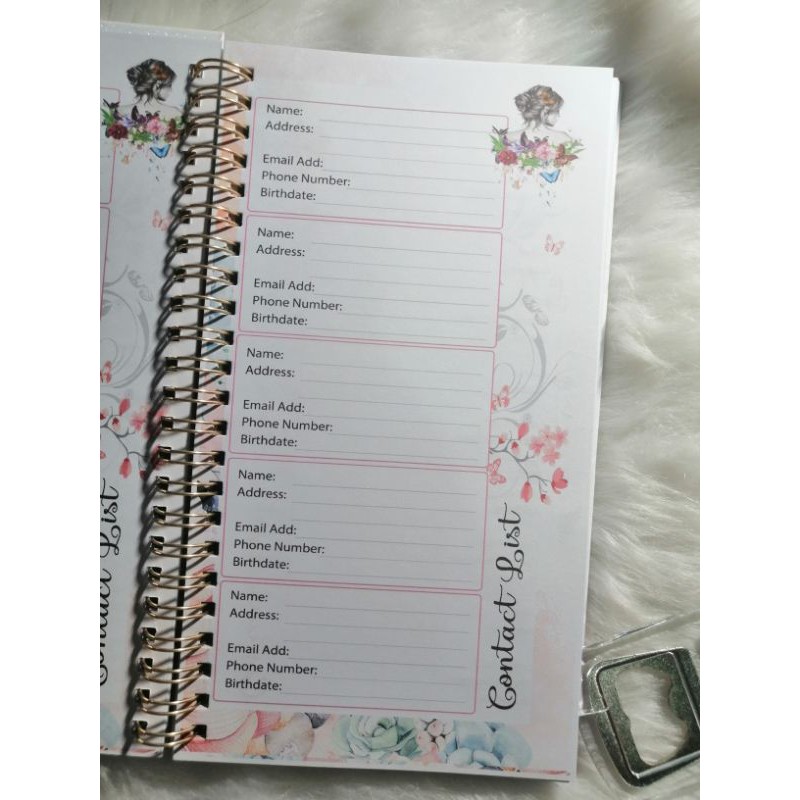 Name:
Address:
Email Add:
Phone Number:
Birthdate:
Name:
Address:
Email Add:
Phone Number:
Birthdate:
Name:
Address:
Email Add:
Phone Number:
Birthdate:
Name:
Address:
Email Add:
Phone Number:
Birthdate:
Name:
Address:
Email Add:
Phone Number:
Birthdate:
Contact List
Contact List